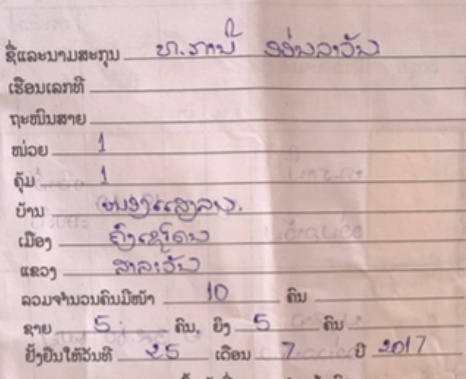 ຊື່ແລະນາມສະກຸນ ທ.ຄານີ
ເຮືອນເລກທີ
ຖະໜົນສາຍ
ໜ່ວຍ 1
ຄຸ້ມ 1
ບ້ານ
ເມືອງ ຄົງເຊໂດນ
ແຂວງ ສາລະວັນ
ລວມຈຳນວນຄົນມີໜ້າ 10 ຄົນ
ຊາຍ 5 ຄົນ, ຍິງ 5 ຄົນ
ຢັ້ງຢືນໃຫ້ວັນທີ 25 ເດືອນ 7 ປີ 2017